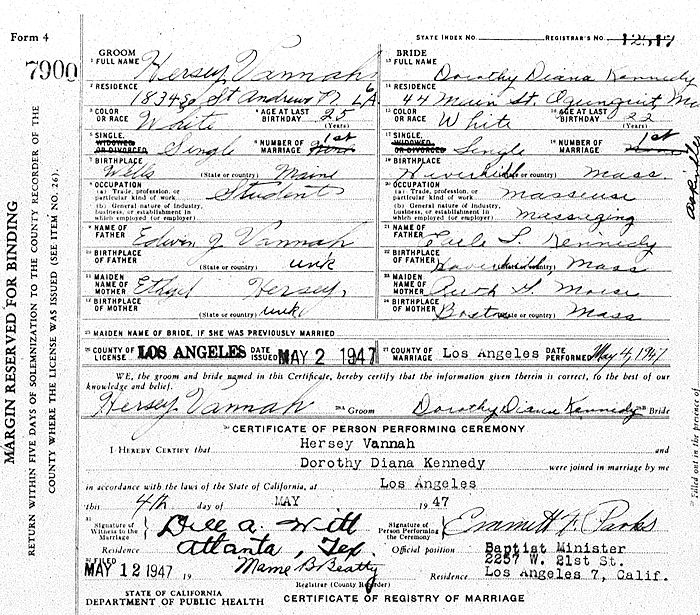 Form 4
STATE INDEX NO. REGISTRAR'S NO. 12517
7900
GROOM
1 FULL NAME Hersey Vannah
2 RESIDENCE 1834 So St Andrews Pl LA
3 COLOR OR RACE White 4 AGE AT LAST BIRTHDAY 25 (Years)
5 SINGLE, WIDOWED OR DIVORCED Single 6 NUMBER OF MARRIAGE 1st
7 BIRTHPLACE Wells (State or country) Maine
8 OCCUPATION
(a) Trade, profession, or particular kind of work Student
(b) General nature of industry, business, or establishment in which employed (or employer)
9 NAME OF FATHER Edwin J Vannah
10 BIRTHPLACE OF FATHER (State or country) unk
11 MAIDEN NAME OF MOTHER Ethyel Hersey
12 BIRTHPLACE OF MOTHER (State or country) unk
BRIDE
13 FULL NAME Dorothy Diana Kennedy
14 RESIDENCE 44 Main St. Ogunquit Ma
15 COLOR OR RACE White 16 AGE AT LAST BIRTHDAY 22 (Years)
17 SINGLE, WIDOWED OR DIVORCED Single 18 NUMBER OF MARRIAGE 1st
19 BIRTHPLACE (State or country) Mass.
20 OCCUPATION
(a) Trade, profession, or particular kind of work masseuse
(b) General nature of industry, business, or establishment in which employed (or employer) massaging
21 NAME OF FATHER Earle L. Kennedy
22 BIRTHPLACE OF FATHER Haverhill (State or country) Mass
23 MAIDEN NAME OF MOTHER Ruth G Morse
24 BIRTHPLACE OF MOTHER Boston (State or country) Mass
25 MAIDEN NAME OF BRIDE, IF SHE WAS PREVIOUSLY MARRIED
26 COUNTY OF LICENSE LOS ANGELES DATE ISSUED MAY 2 1947 27 COUNTY OF MARRIAGE Los Angeles DATE PERFORMED May 4, 1947
WE, the groom and bride named in this Certificate, hereby certify that the information given therein is correct, to the best of our
knowledge and belief.
Hersey Vannah 28A Groom Dorothy Diana Kennedy 28B Bride
CERTIFICATE OF PERSON PERFORMING CEREMONY
I HEREBY CERTIFY that Hersey Vannah and
Dorothy Diana Kennedy were joined in marriage by me
in accordance with the laws of the State of California, at Los Angeles
this 4th day of MAY 1947
Signature of Witness to the Marriage Dell A. Witt Signature of Person Performing the Ceremony Emmett F. Parks
Residence Atlanta, Tex. Official position Baptist Minister
2257 W. 21st St.
FILED MAY 12 1947 19 Mame B Beatty Residence Los Angeles 7, Calif.
Registrar (County Recorder)
STATE OF CALIFORNIA
DEPARTMENT OF PUBLIC HEALTH CERTIFICATE OF REGISTRY OF MARRIAGE
MARGIN RESERVED FOR BINDING
RETURN WITHIN FIVE DAYS OF SOLEMNIZATION TO THE COUNTY RECORDER OF THE
COUNTY WHERE THE LICENSE WAS ISSUED (SEE ITEM NO. 26).
Filled out in the presence of